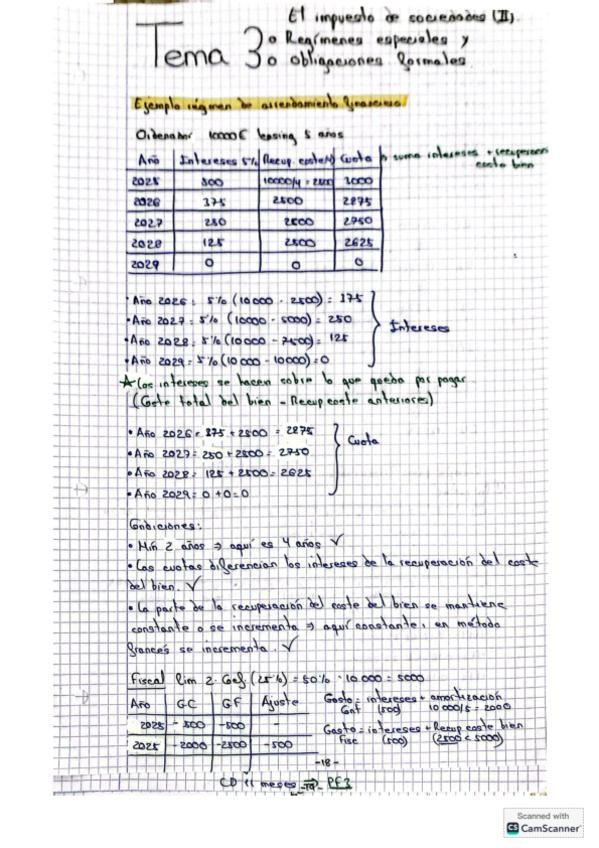 El impuesto de sociedades (II).
Tema 3: Regímenes especiales y
obligaciones formales.
Ejemplo régimen de arrendamiento financiero
Ordenador 10000€ leasing 5 años
Año | Intereses 5% | Recup. coste | Cuota → suma intereses + recuperación
coste bien
2025 | 500 | 10000/4 = 2500 | 3000
2026 | 375 | 2500 | 2875
2027 | 250 | 2500 | 2750
2028 | 125 | 2500 | 2625
2029 | 0 | 0 | 0
• Año 2026: 5% (10000 - 2500) = 375
• Año 2027: 5% (10000 - 5000) = 250
• Año 2028: 5% (10000 - 7500) = 125
• Año 2029: 5% (10000 - 10000) = 0
Intereses
★ Los intereses se hacen sobre lo que queda por pagar
(Coste total del bien - Recup coste anteriores)
• Año 2026 = 375 + 2500 = 2875
• Año 2027 = 250 + 2500 = 2750
• Año 2028 = 125 + 2500 = 2625
• Año 2029 = 0 + 0 = 0
Cuota
Condiciones:
• Min 2 años ⇒ aquí es 4 años ✓
• Las cuotas diferencian los intereses de la recuperación del coste
del bien. ✓
• La parte de la recuperación del coste del bien se mantiene
constante o se incrementa ⇒ aquí constante, en método
francés se incrementa. ✓
Fiscal lim 2· Coef. (25%) = 50% · 10000 = 5000
Año | GC | GF | Ajuste
2025 | -500 | -500 | -
2025 | -2000 | -2500 | -500
Gasto = intereses + amortización
Cont (500) 10000/5 = 2000
Gasto = intereses + Recup coste bien
Fisc (500) (2500 < 5000)
-18-
CD 12 meses ⇒ PF3
Scanned with
CS CamScanner